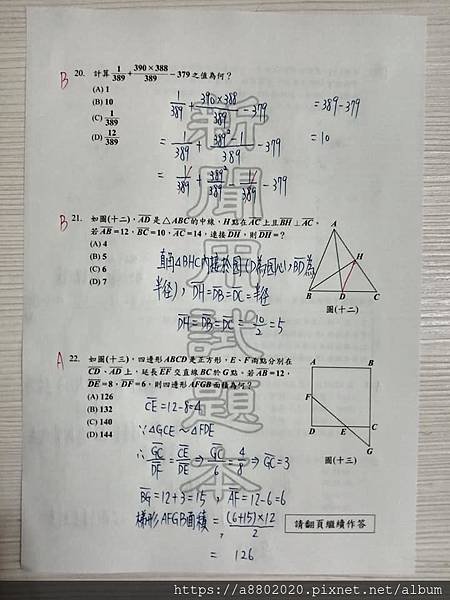 B 20. 計算 1/389 + 390×388/389 − 379 之值為何？
(A) 1
(B) 10
(C) 1/389
(D) 12/389
1/389 + 390×388/389 − 379
= 1/389 + 389²−1/389 − 379
= 1/389 + 389²/389 − 1/389 − 379
= 389−379
= 10
B 21. 如圖(十二)，AD 是△ABC的中線，H點在AC上且BH⊥AC。
若AB=12，BC=10，AC=14，連接DH，則DH=？
(A) 4
(B) 5
(C) 6
(D) 7
直角△BHC內接於圓(D為圓心)，BD為
半徑)，DH=DB=DC=半徑
DH=DB=DC=10/2=5
A
H
B
D
C
圖(十二)
A 22. 如圖(十三)，四邊形ABCD是正方形，E、F兩點分別在
CD、AD上，延長EF交直線BC於G點，若AB=12，
DE=8，DF=6，則四邊形AFGB面積為何？
(A) 126
(B) 132
(C) 140
(D) 144
CE=12-8=4
∵△GCE～△FDE
∴ GC/DF = CE/DE ⇒ GC/6 = 4/8 ⇒ GC=3
BG=12+3=15，AF=12-6=6
梯形AFGB面積 = (6+15)×12/2
= 126
A
B
F
D
E
C
G
圖(十三)
請翻頁繼續作答
新聞用試題本
https://a8802020.pixnet.net/album